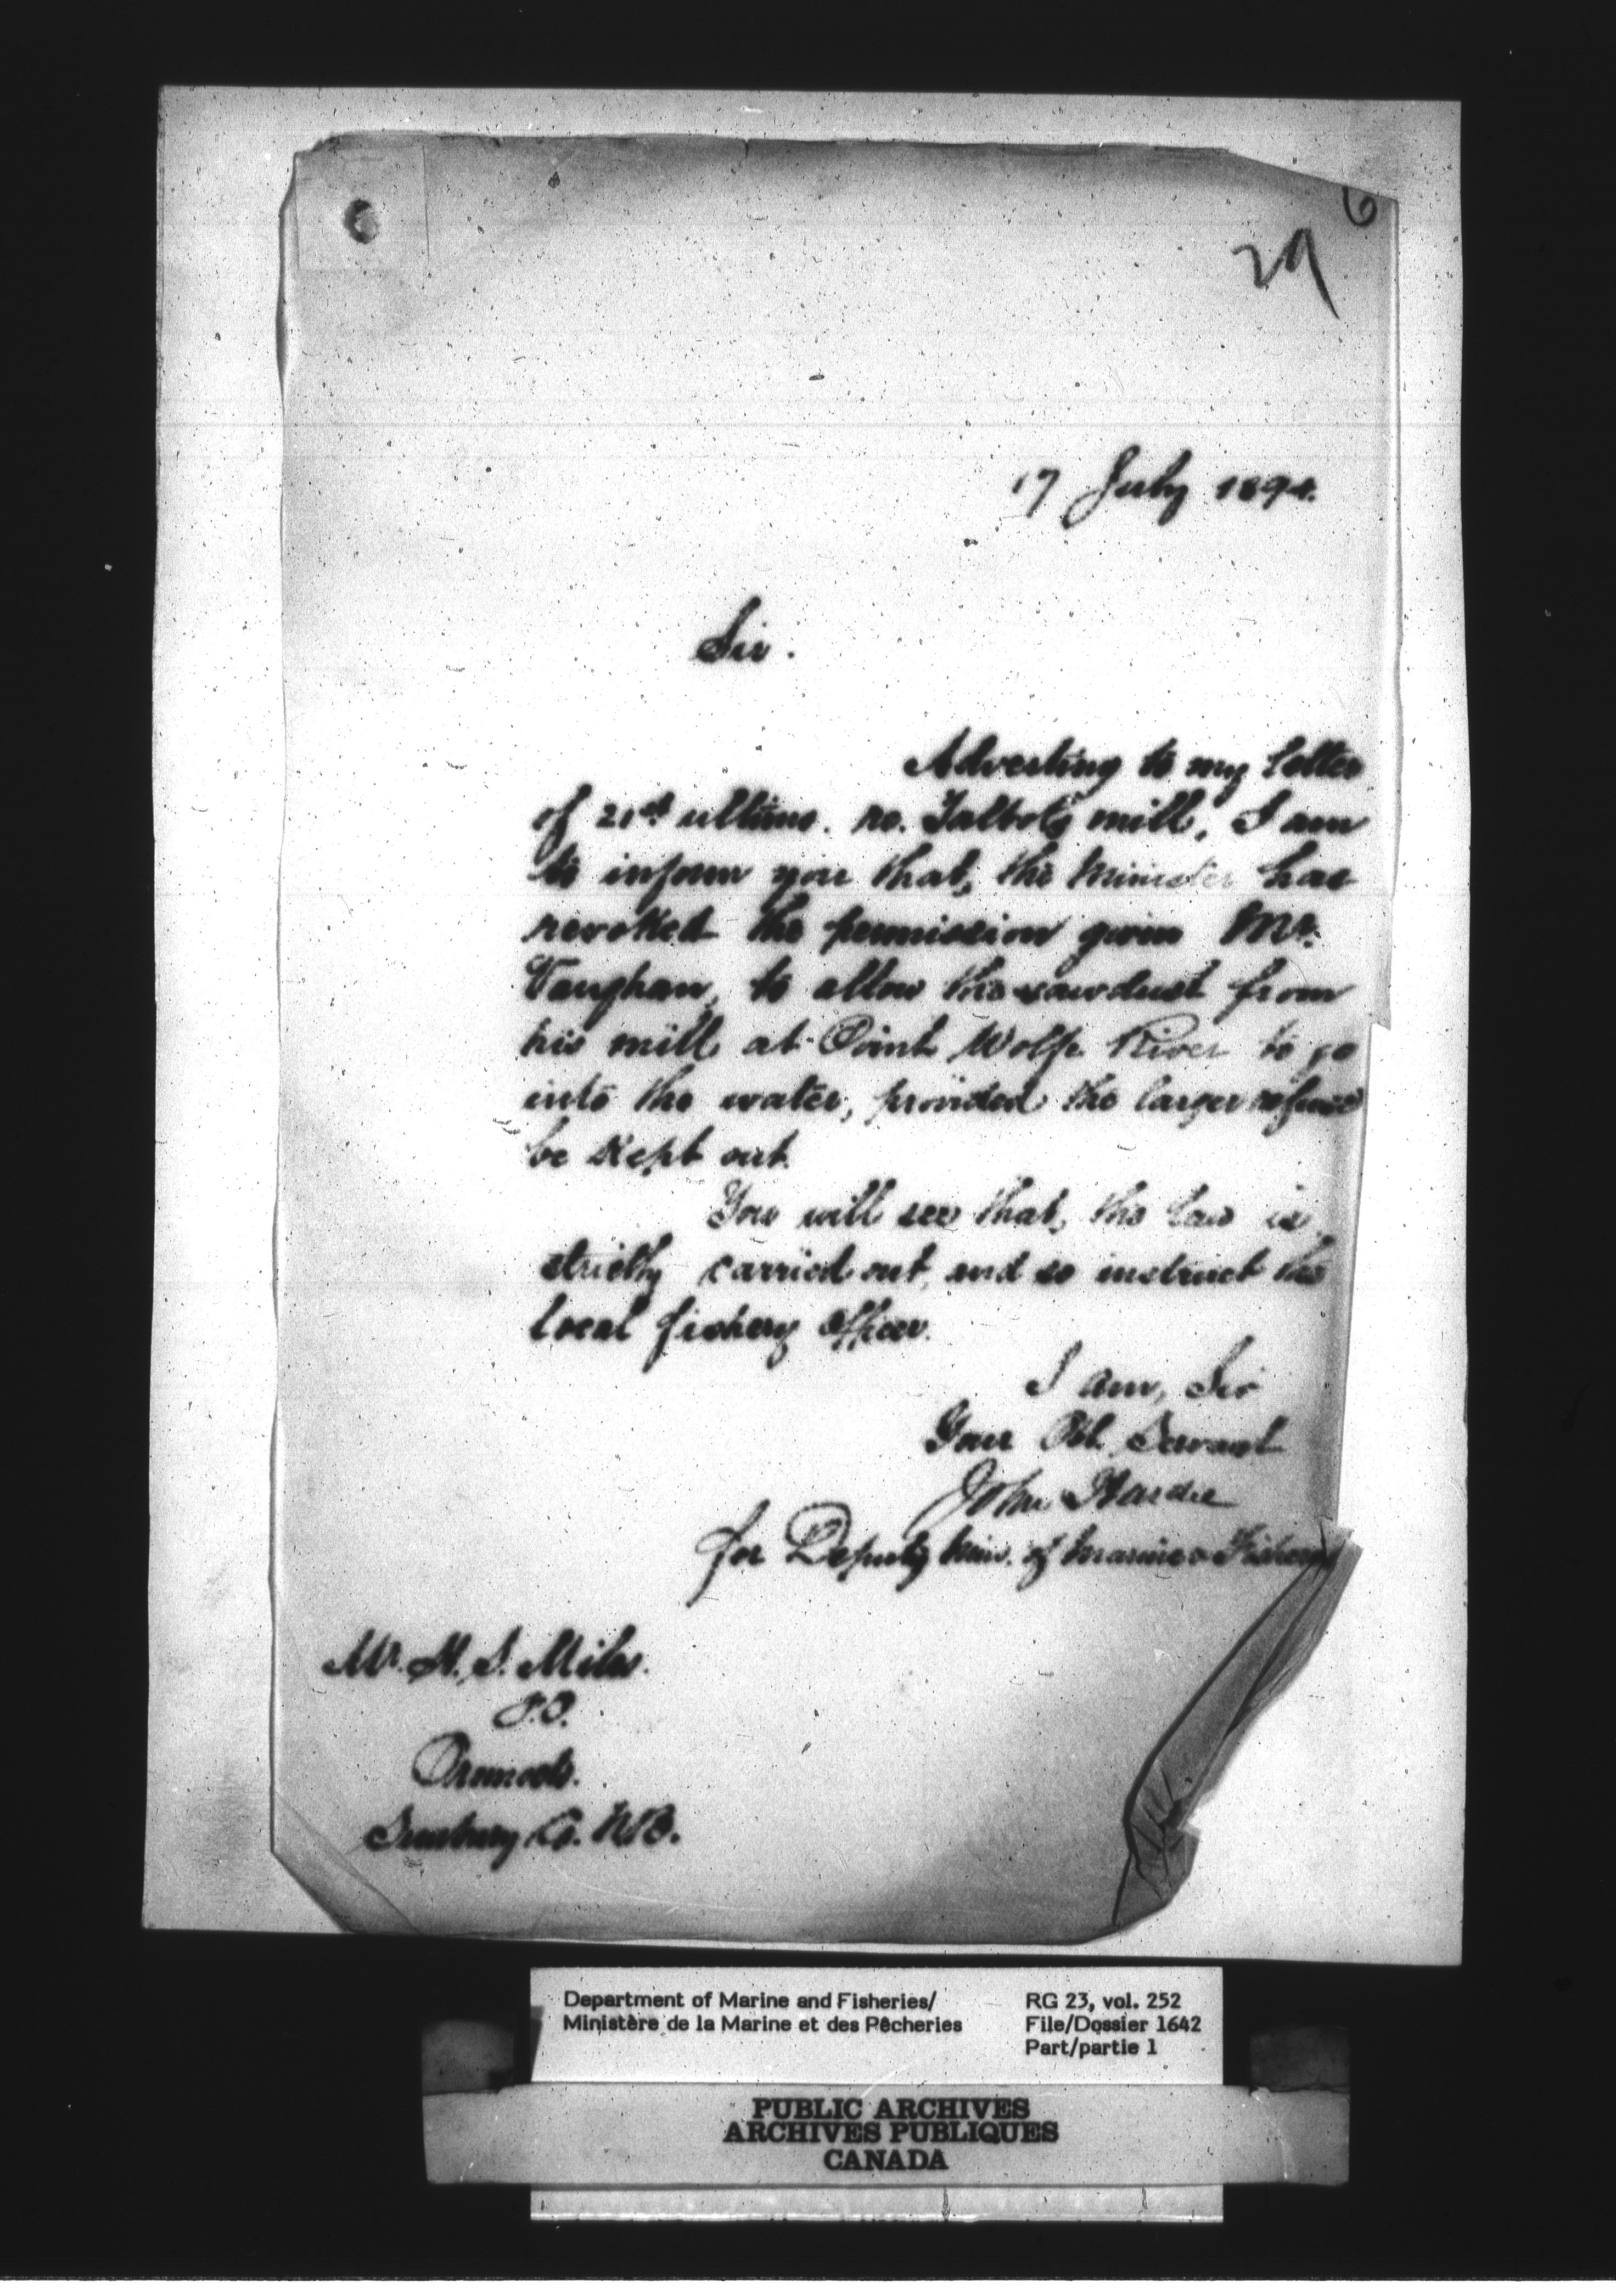 6
29
17 July 1894.
Sir.
Adverting to my letter
of 21st ultimo. re. Talbot's mill, I am
to inform you that, the Minister has
revoked the permission given Mr.
Vaughan, to allow the sawdust from
his mill at Point Wolfe River to go
into the water, provided the larger refuse
be kept out.
You will see that, the law is
strictly carried out, and so instruct the
local fishery officer.
I am, Sir
Your Obt. Servant
John Hardie
for Deputy Min. of Marine & Fisheries
Mr. H. S. Miles.
Oromocto.
Sunbury Co. N.B.
Department of Marine and Fisheries/
Ministère de la Marine et des Pêcheries
RG 23, vol. 252
File/Dossier 1642
Part/partie 1
PUBLIC ARCHIVES
ARCHIVES PUBLIQUES
CANADA